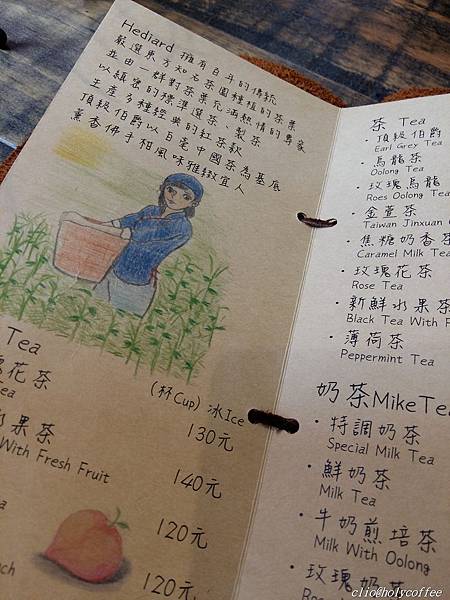 Hediard 擁有百年的傳統
嚴選東方知名茶園種植的茶葉
並由一群對茶葉充滿熱情的專家
以縝密的標準選茶、製茶
生產多種經典的紅茶款
頂級伯爵以白毫中國茶為基底
薰香佛手柑風味雅緻宜人
Tea
花茶
Tea
(杯Cup) 冰Ice
130元
果茶
With Fresh Fruit
140元
120元
120元
茶 Tea
· 頂級伯爵
Earl Grey Tea
· 烏龍茶
Oolong Tea
· 玫瑰烏龍
Roes Oolong Tea
· 金萱茶
Taiwan Jinxuan
· 焦糖奶香茶
Caramel Milk Tea
· 玫瑰花茶
Rose Tea
· 新鮮水果茶
Black Tea With F
· 薄荷茶
Peppermint Tea
奶茶MikeTea
· 特調奶茶
Special Milk Tea
· 鮮奶茶
Milk Tea
· 牛奶煎培茶
Milk With Oolong
· 玫瑰奶茶
clio@holycoffee